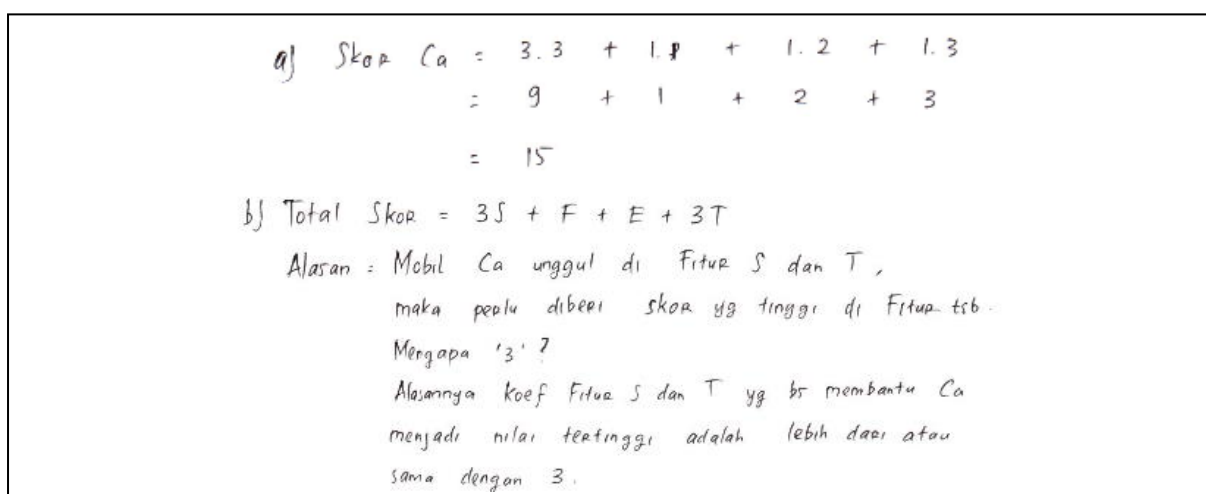 a) Skor Ca = 3.3 + 1.1 + 1.2 + 1.3
= 9 + 1 + 2 + 3
= 15
b) Total Skor = 3S + F + E + 3T
Alasan = Mobil Ca unggul di Fitur S dan T,
maka perlu diberi skor yg tinggi di Fitur tsb.
Mengapa '3' ?
Alasannya koef Fitur S dan T yg bs membantu Ca
menjadi nilai tertinggi adalah lebih dari atau
sama dengan 3.